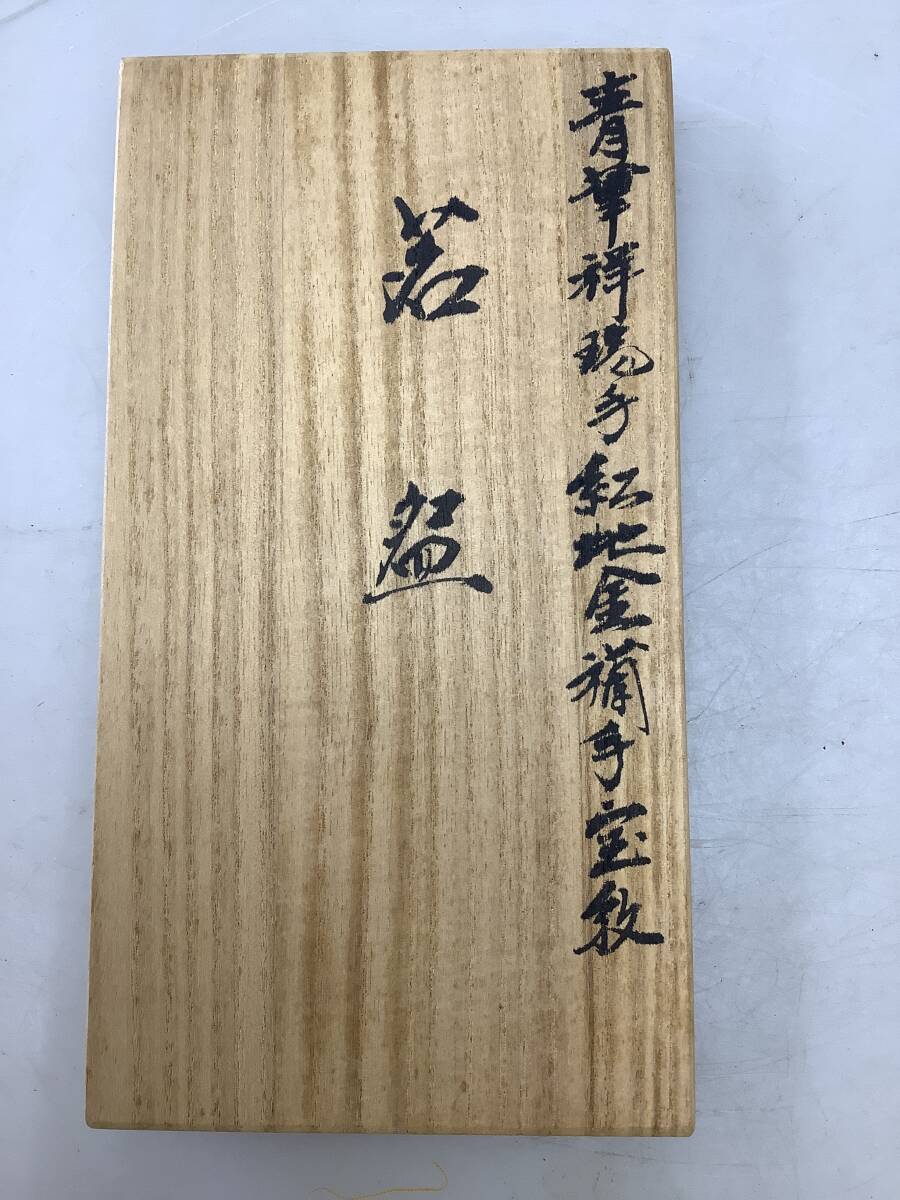 青華祥瑞手紅地金襴手宝敪
茗盌